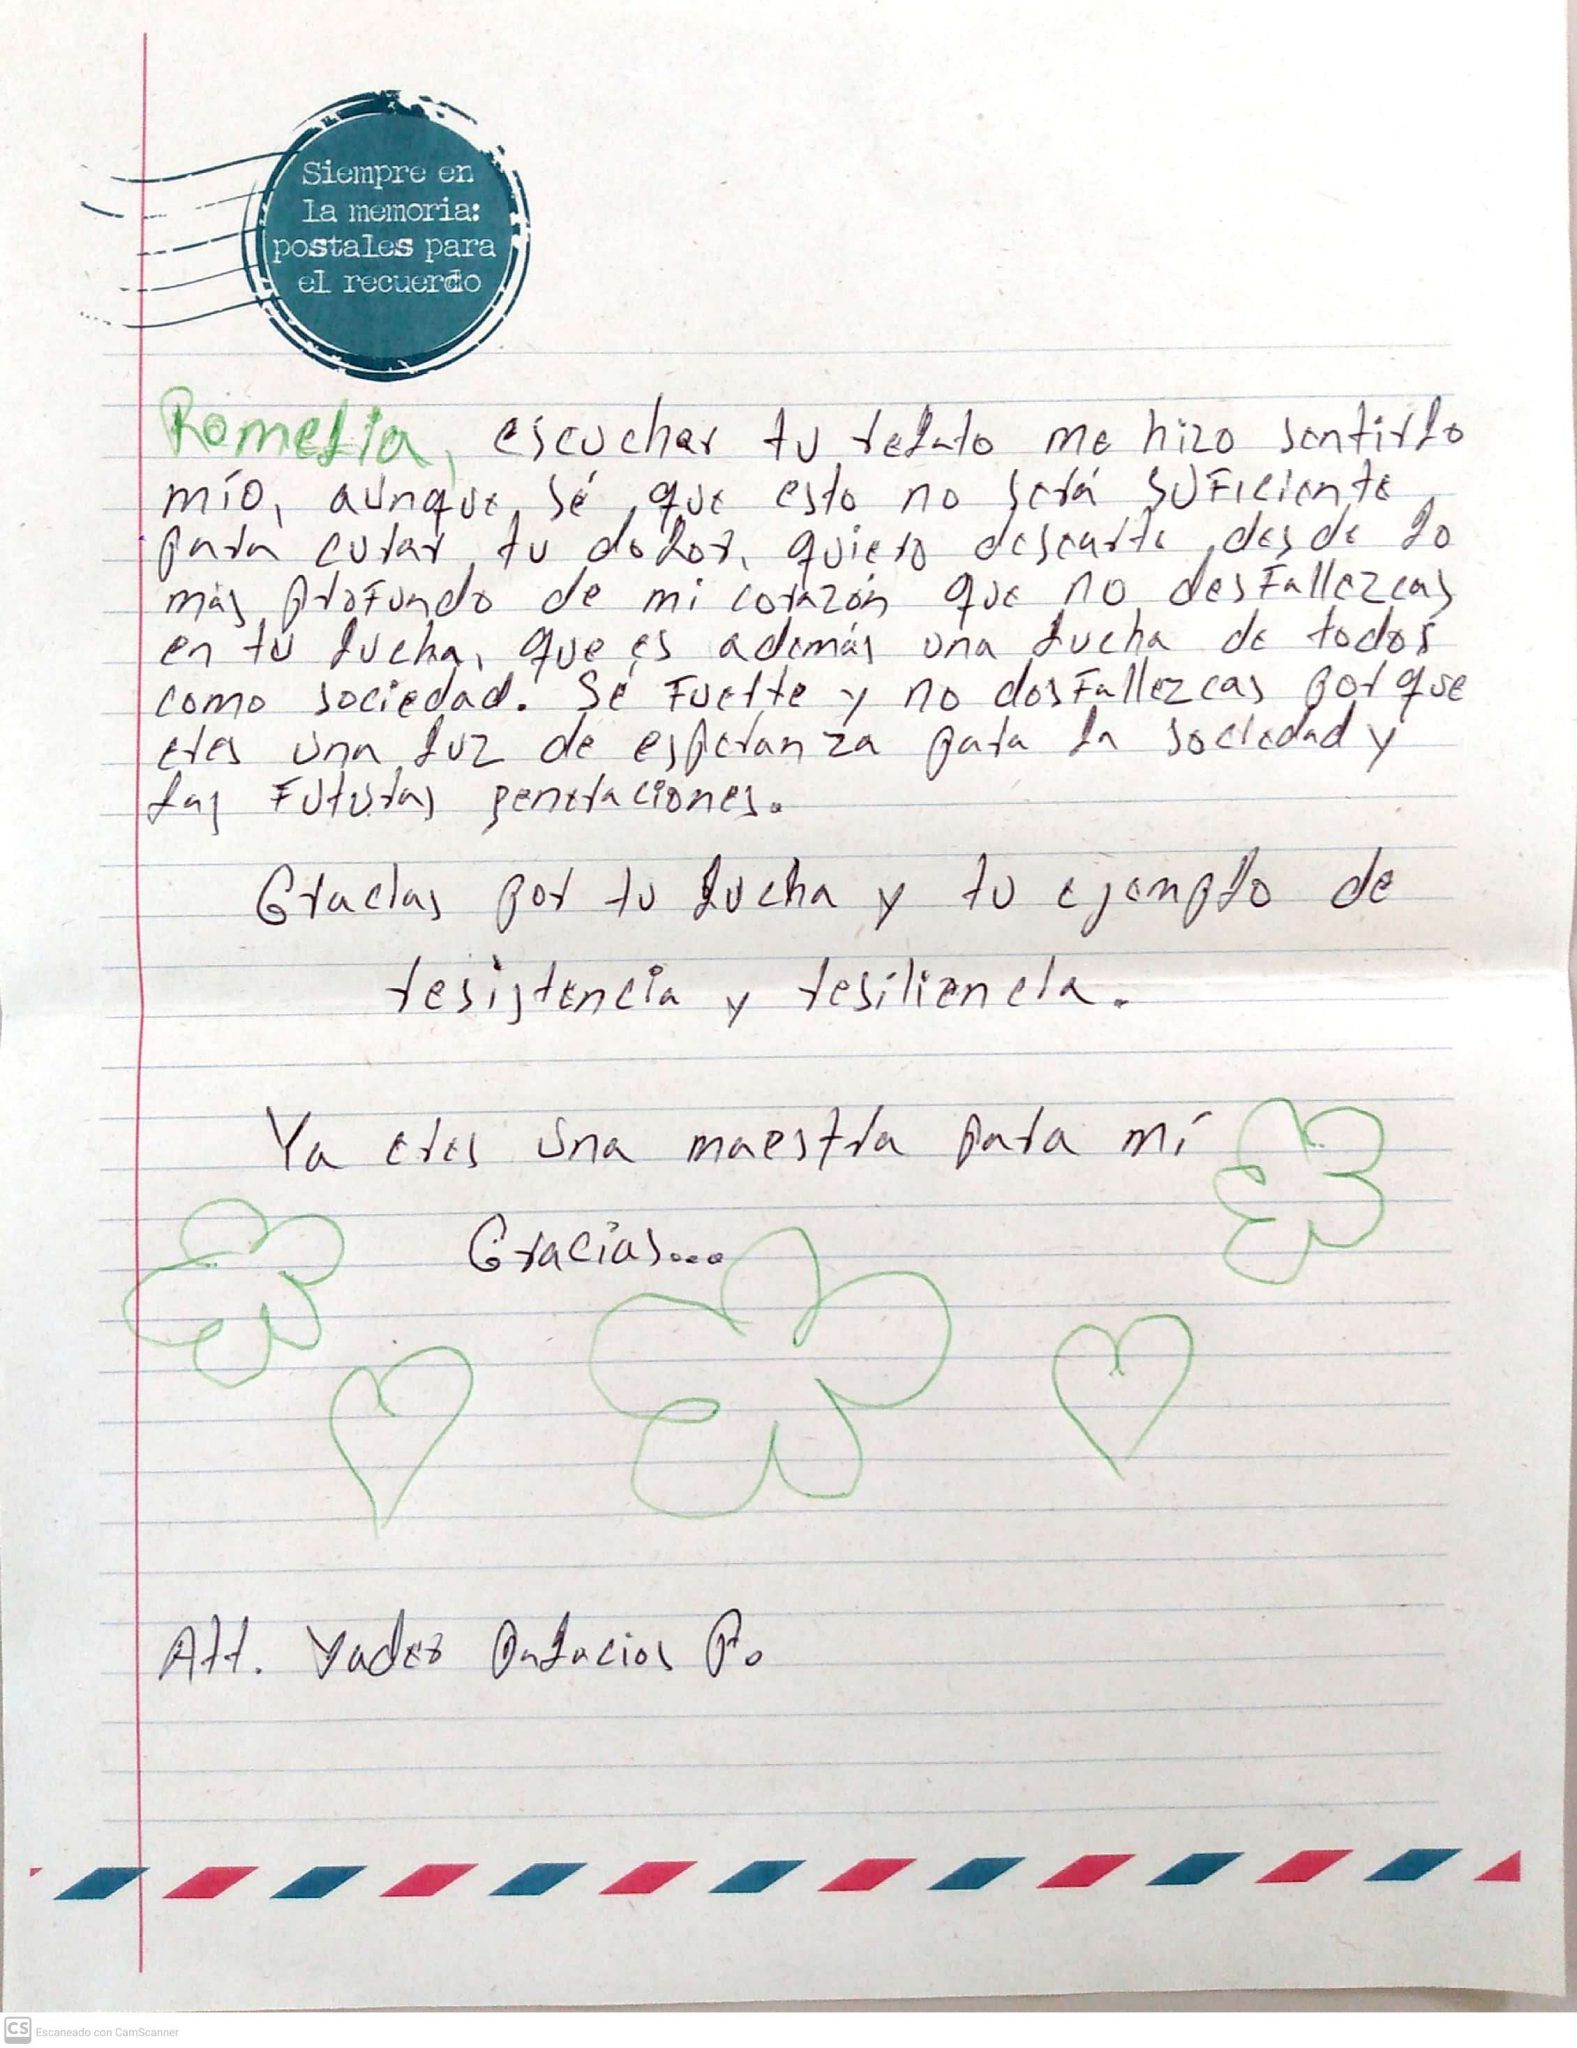 Siempre en
la memoria:
postales para
el recuerdo
Romelia, escuchar tu relato me hizo sentirlo
mío, aunque sé que esto no será suficiente
para curar tu dolor, quiero desearte desde lo
más profundo de mi corazón que no desfallezcas
en tu lucha, que es además una lucha de todos
como sociedad. Sé fuerte y no desfallezcas porque
eres una luz de esperanza para la sociedad y
las futuras generaciones.
Gracias por tu lucha y tu ejemplo de
resistencia y resiliencia.
Ya eres una maestra para mí
Gracias...
Att. Yader Palacios P.
CS Escaneado con CamScanner